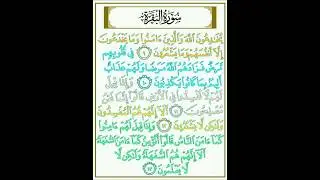 سورة البقرة
يخدعون الله والذين ءامنوا وما يخدعون
إلا أنفسهم وما يشعرون ٩ في قلوبهم
مرض فزادهم الله مرضا ولهم عذاب
أليم بما كانوا يكذبون ١٠ وإذا قيل
لهم لا تفسدوا في الأرض قالوا إنما نحن
مصلحون ١١ ألا إنهم هم المفسدون
ولكن لا يشعرون ١٢ وإذا قيل لهم ءامنوا
كما ءامن الناس قالوا أنؤمن كما ءامن السفهاء
ألا إنهم هم السفهاء ولكن لا
يعلمون ١٣